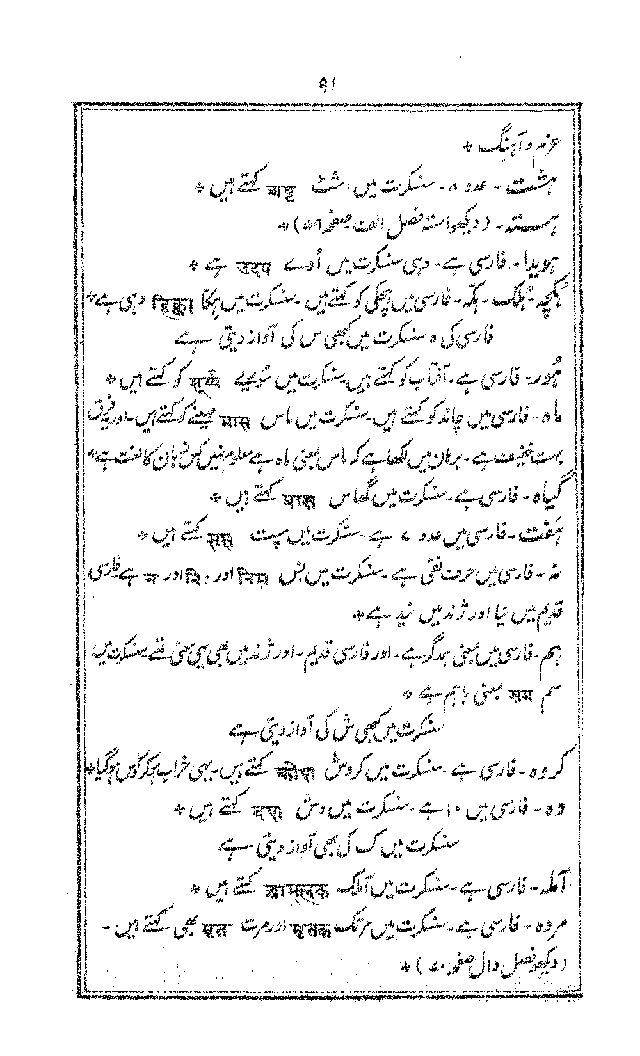 ۹۱
عزم و آہنگ *
ہشت - عدد ۸ - سنسکرت میں اشٹ अष्ट کہتے ہیں *
ہستہ - (دیکھو استہ فصل الف صفحہ
ہویدا - فارسی ہے - وہی سنسکرت میں اُدے उदय ہے *
ہکچہ - ہکک - ہکہ - فارسی میں ہچکی کو کہتے ہیں - سنسکرت میں ہکا हिक्का وہی ہے *
فارسی کی ہ سنسکرت میں کبھی س کی آواز دیتی ہے
ہور - فارسی ہے - آفتاب کو کہتے ہیں سنسکرت میں سُوریے सूर्य کو کہتے ہیں *
ماہ - فارسی میں چاند کو کہتے ہیں - سنسکرت میں ماس मास مہینے کو کہتے ہیں - اور فرق
بہت خفیف ہے - برہان میں لکھا ہے کہ ماس بمعنی ماہ ہے معلوم نہیں کس زبان کا لغت ہے *
گیاہ - فارسی ہے - سنسکرت میں گھاس घास کہتے ہیں *
ہفت - فارسی میں عدد ۷ ہے - سنسکرت میں سپت सप्त کہتے ہیں *
نہ - فارسی میں حرف نفی ہے - سنسکرت میں نس निस اور नि: اور न ہے فارسی
قدیم میں نیا اور ژند میں نید ہے *
ہم - فارسی میں بمعنی ہمدگر ہے - اور فارسی قدیم - اور ژند میں بھی یہی معنی تھے سنسکرت میں
سم सम بمعنی باہم ہے *
سنسکرت میں کبھی ش کی آواز دیتی ہے
کروہ - فارسی ہے - سنسکرت میں کروش क्रोश کہتے ہیں - یہی خراب ہوکر کوس ہوگیا *
دہ - فارسی میں ۱۰ ہے - سنسکرت میں دش दश کہتے ہیں *
سنسکرت میں ک کی بھی آواز دیتی ہے
آملہ - فارسی ہے - سنسکرت میں آملک आमलक کہتے ہیں *
مردہ - فارسی ہے - سنسکرت میں مرتک मृतक اور مرت मृत بھی کہتے ہیں -
(دیکھو فصل دال صفحہ ۵۰) *